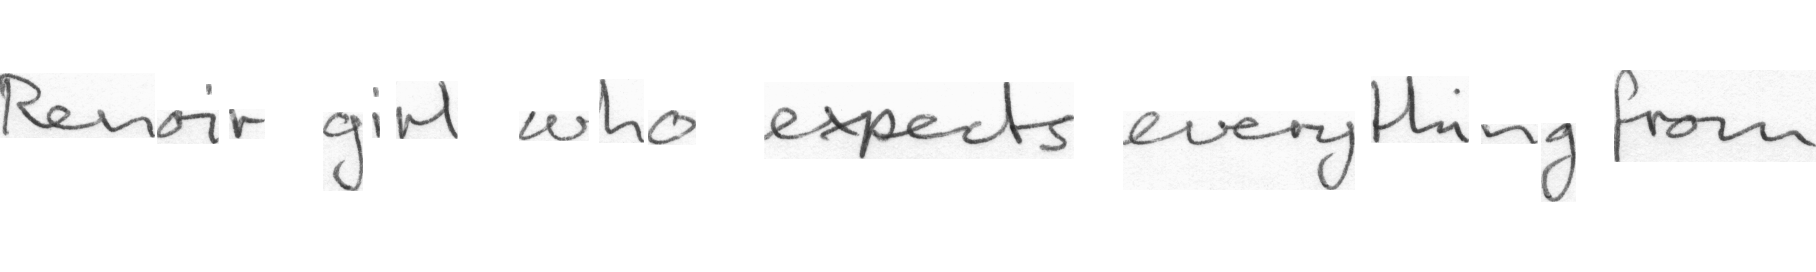 Renoir girl who expects everything from